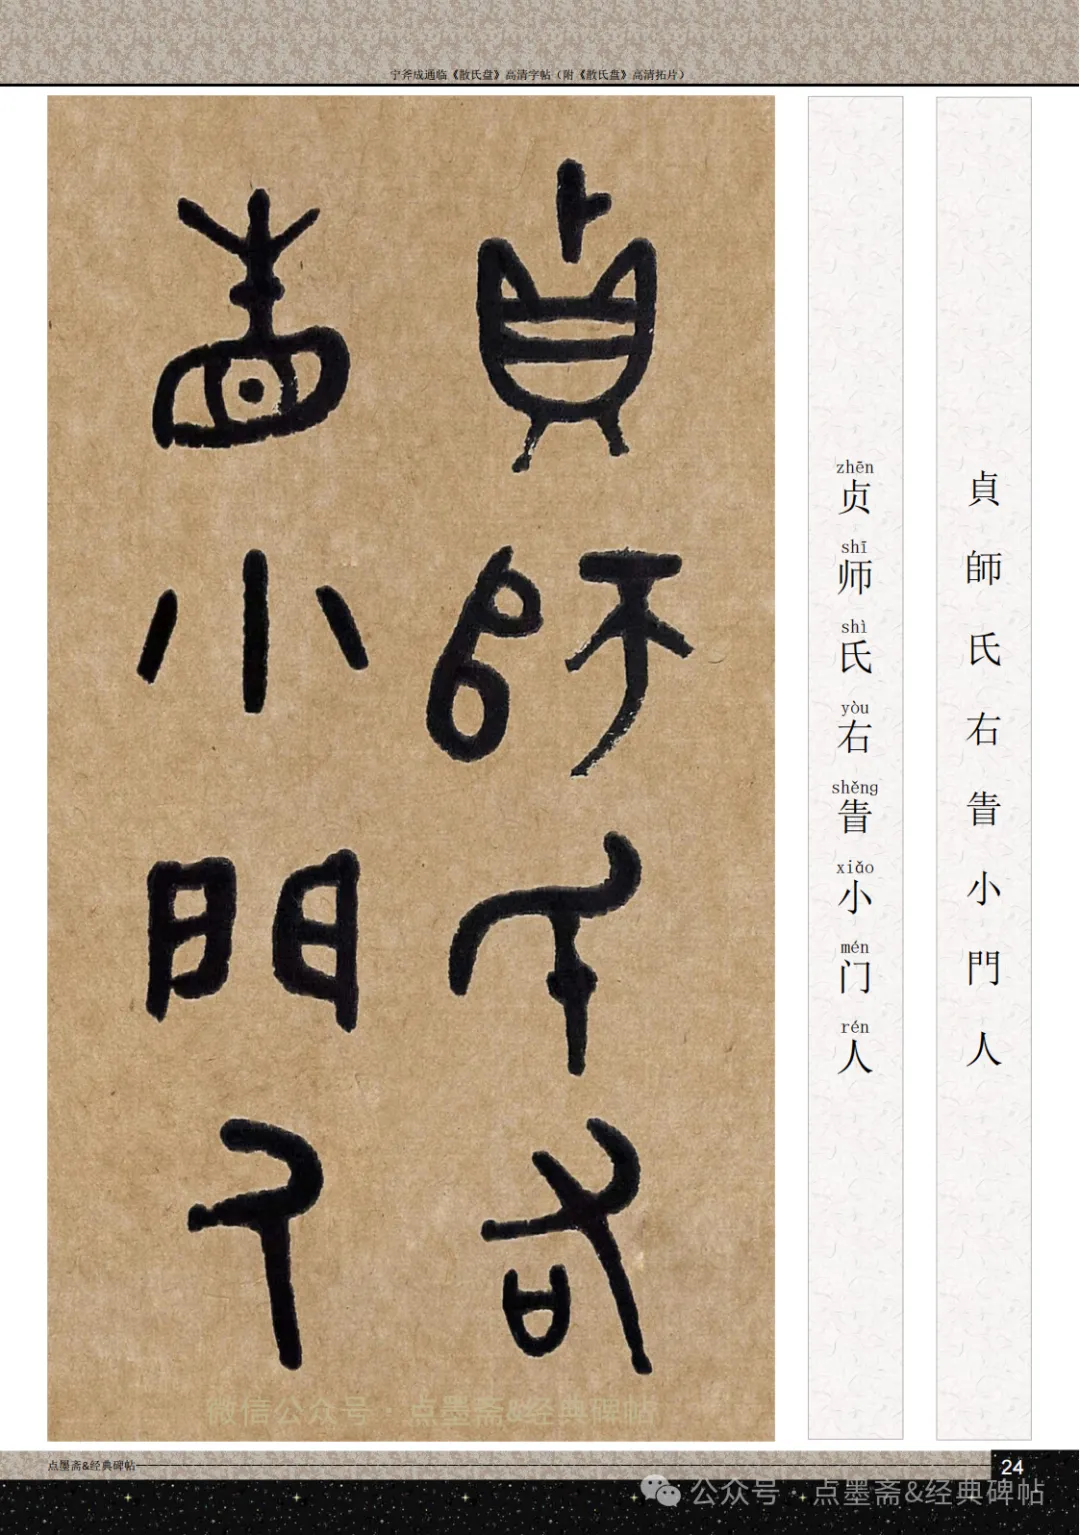 宁斧成通临《散氏盘》高清字帖（附《散氏盘》高清拓片）
貞師氏右
眚小門人
zhēn shī shì yòu shěng xiǎo mén rén
贞师氏右眚小门人
貞師氏右眚小門人
微信公众号·点墨斋&经典碑帖
点墨斋&经典碑帖
24
公众号·点墨斋&经典碑帖